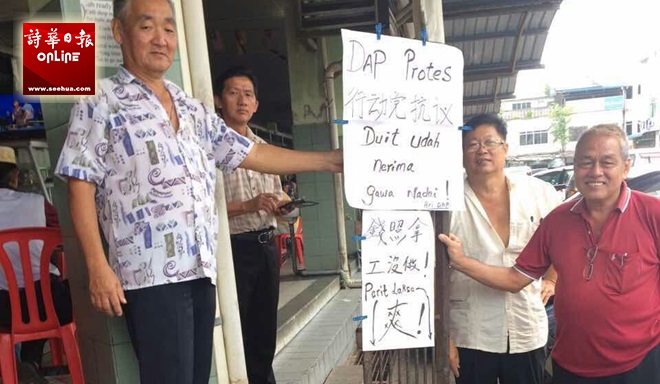 詩華日報
ONLINE
www.seehua.com
DAP Protes
行动党抗议
Duit udah
nerima
gawa nadai !
錢照拿
工沒做!
Parit Laksa
爽!